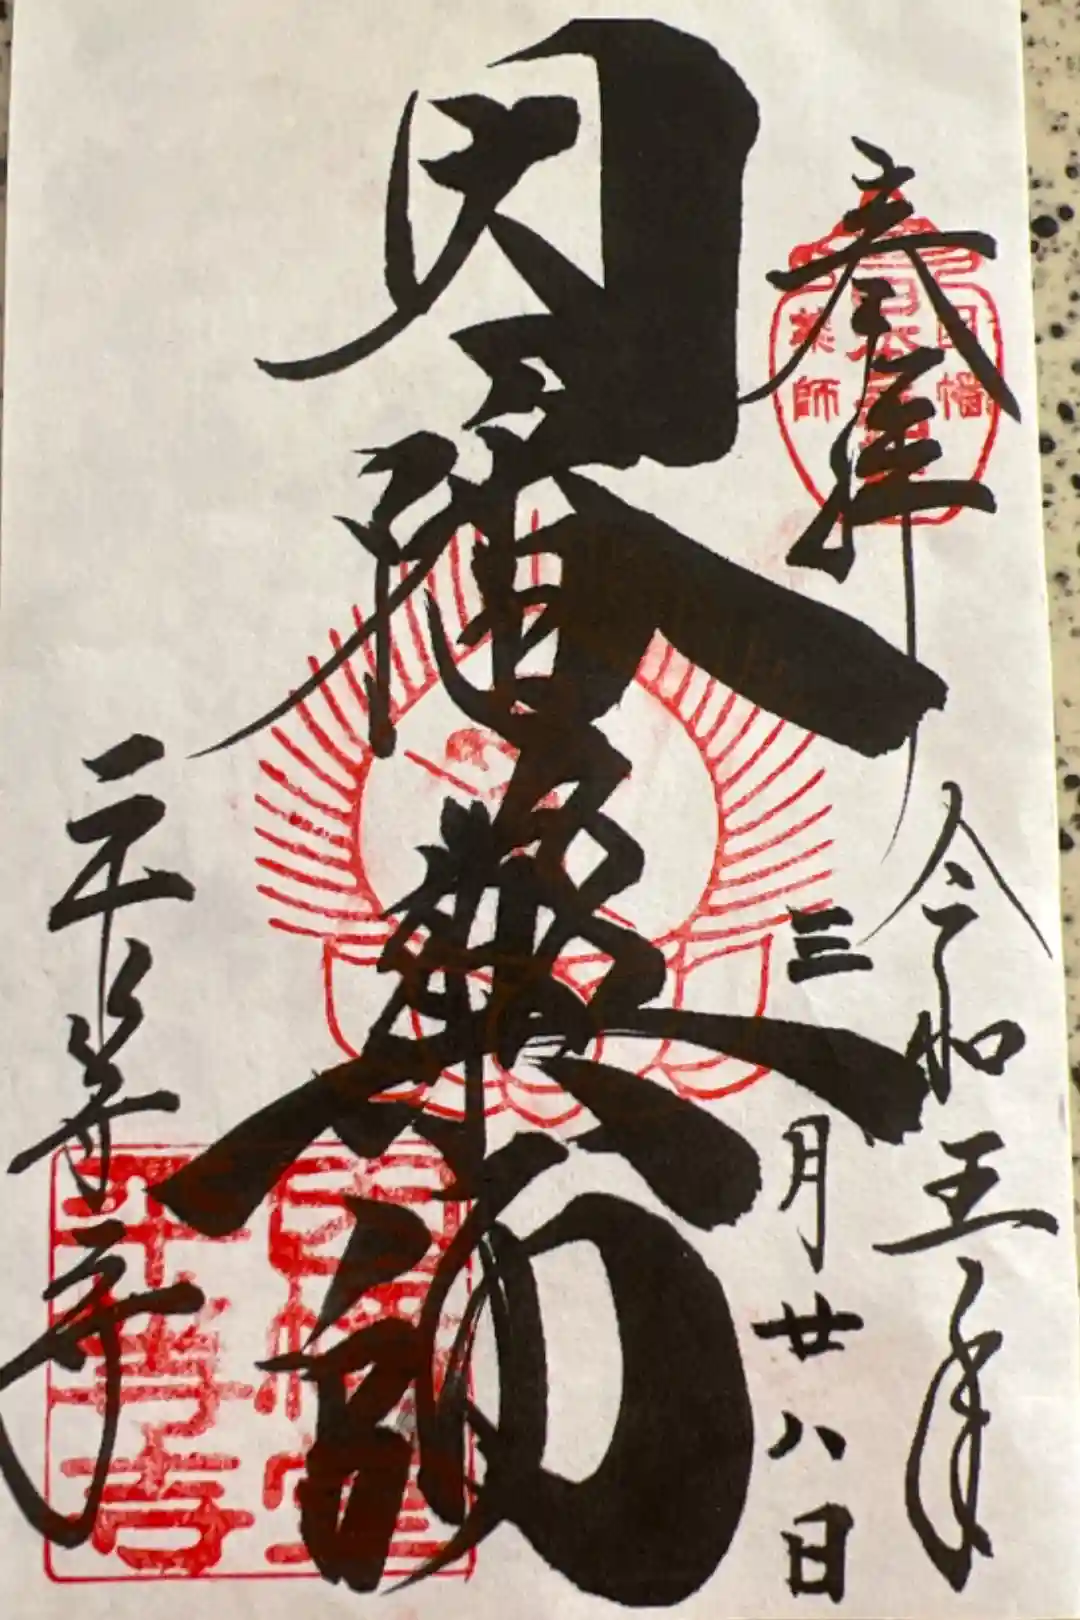 奉拝
因幡
薬師
令和五年
三月廿八日
因幡薬師
平等寺
因幡堂
平等寺